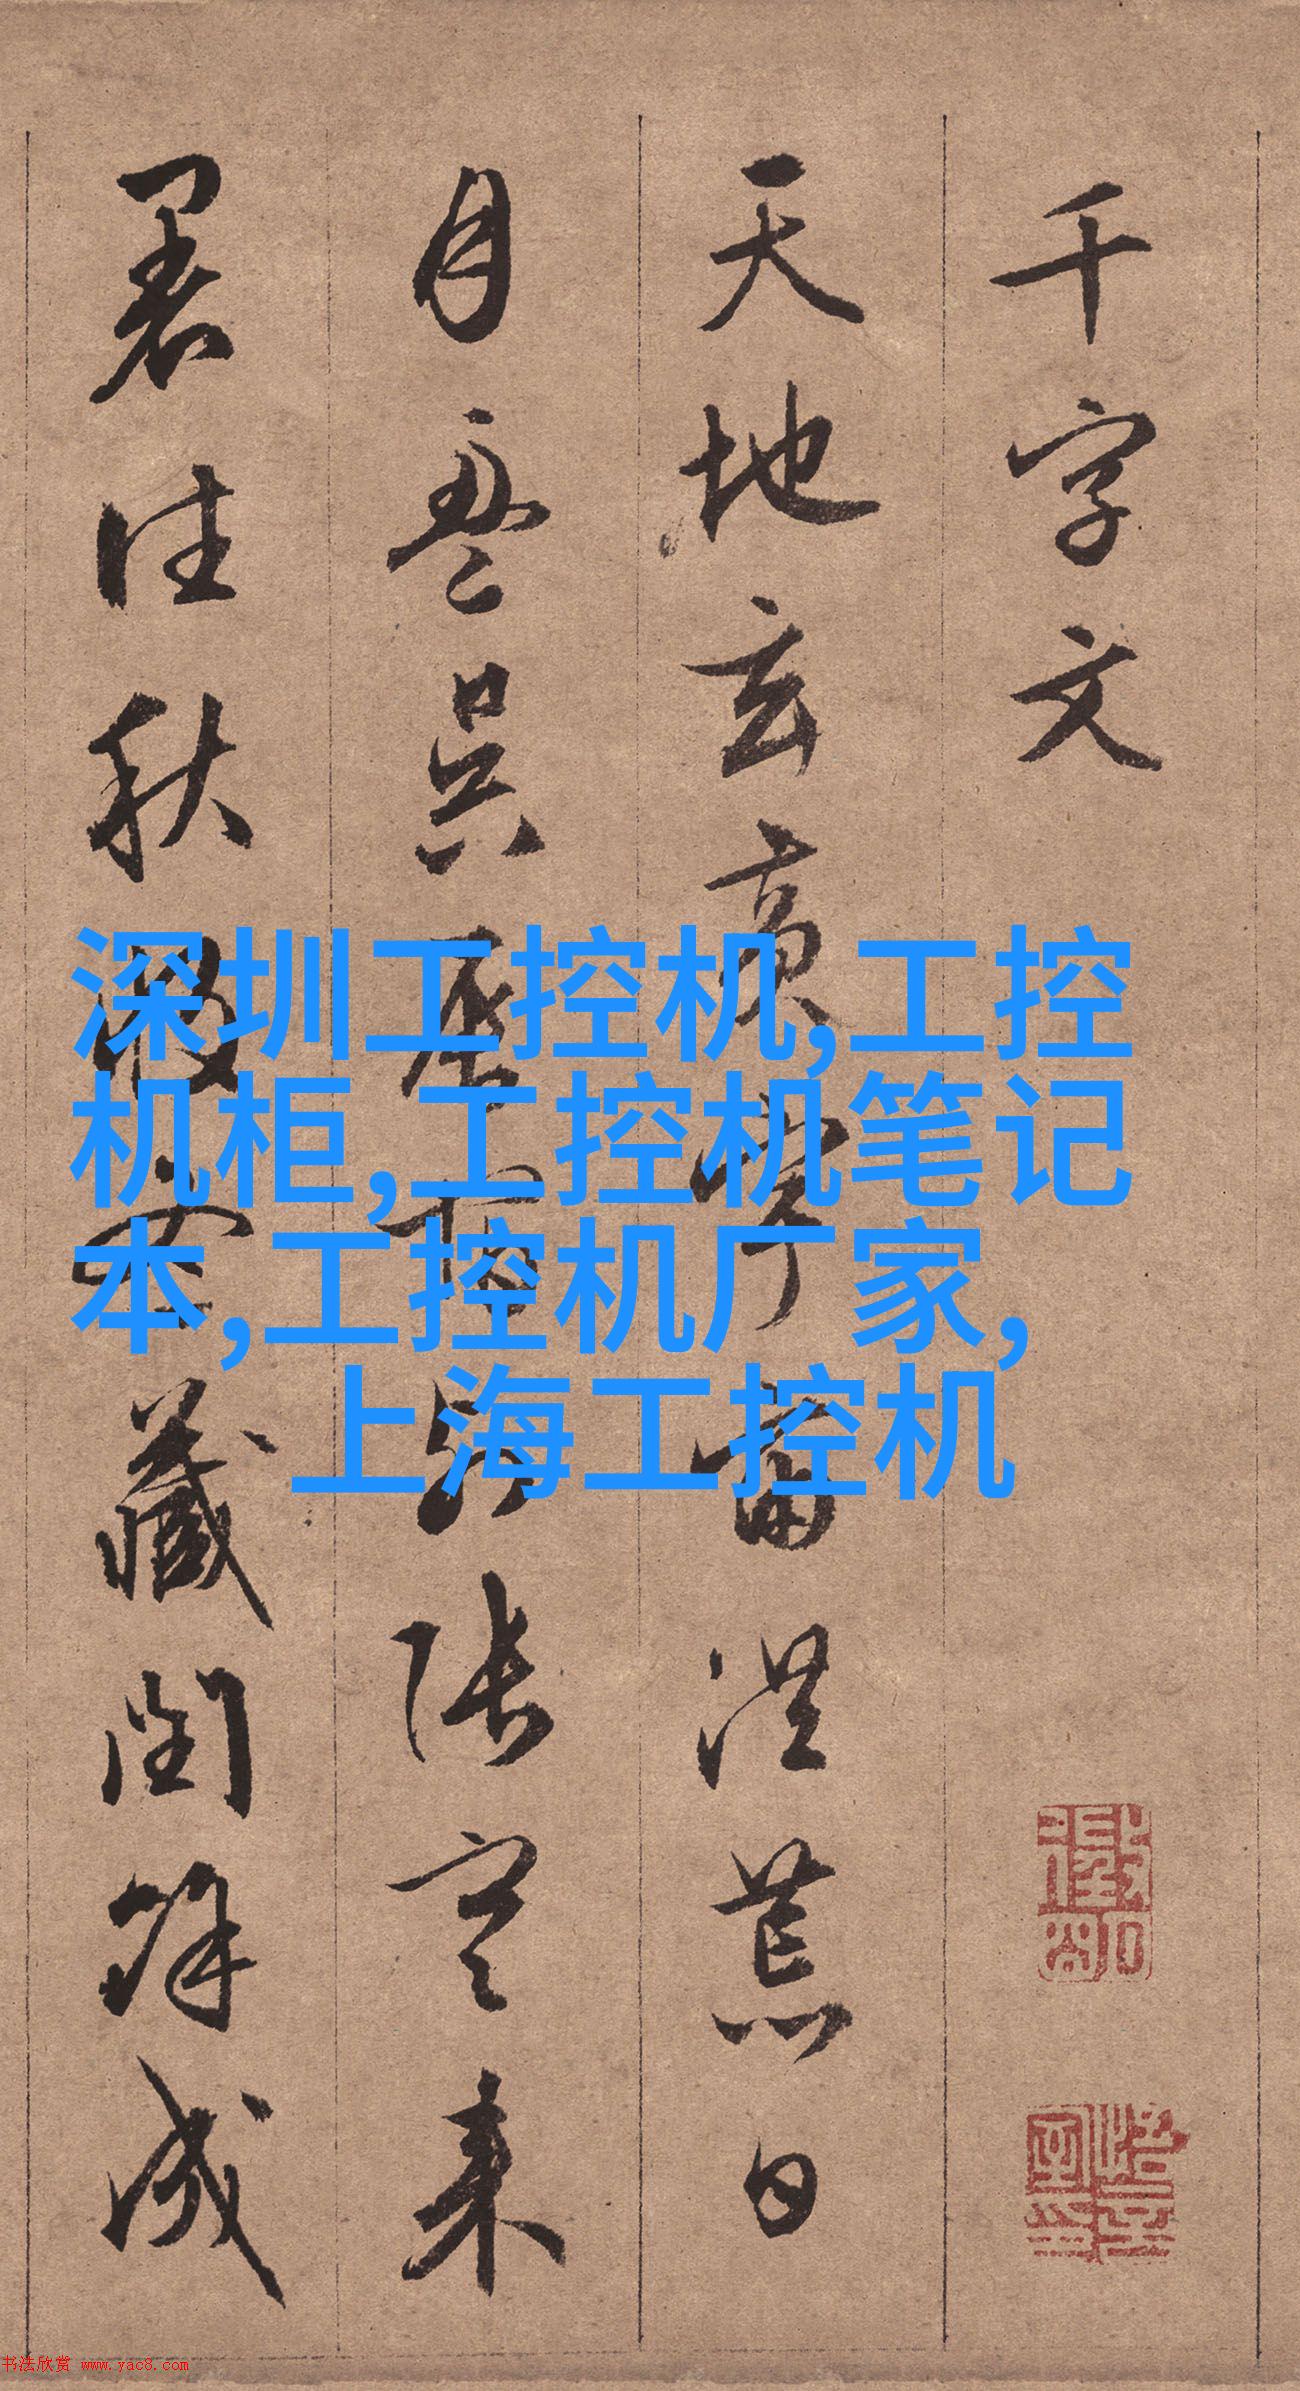 千字文
天地玄黄宇宙洪荒日
月盈昃辰宿列张寒来
暑往秋收冬藏闰馀成
深圳工控机,工控
机柜,工控机笔记
本,工控机厂家,
上海工控机
书法欣赏 www.yac8.com